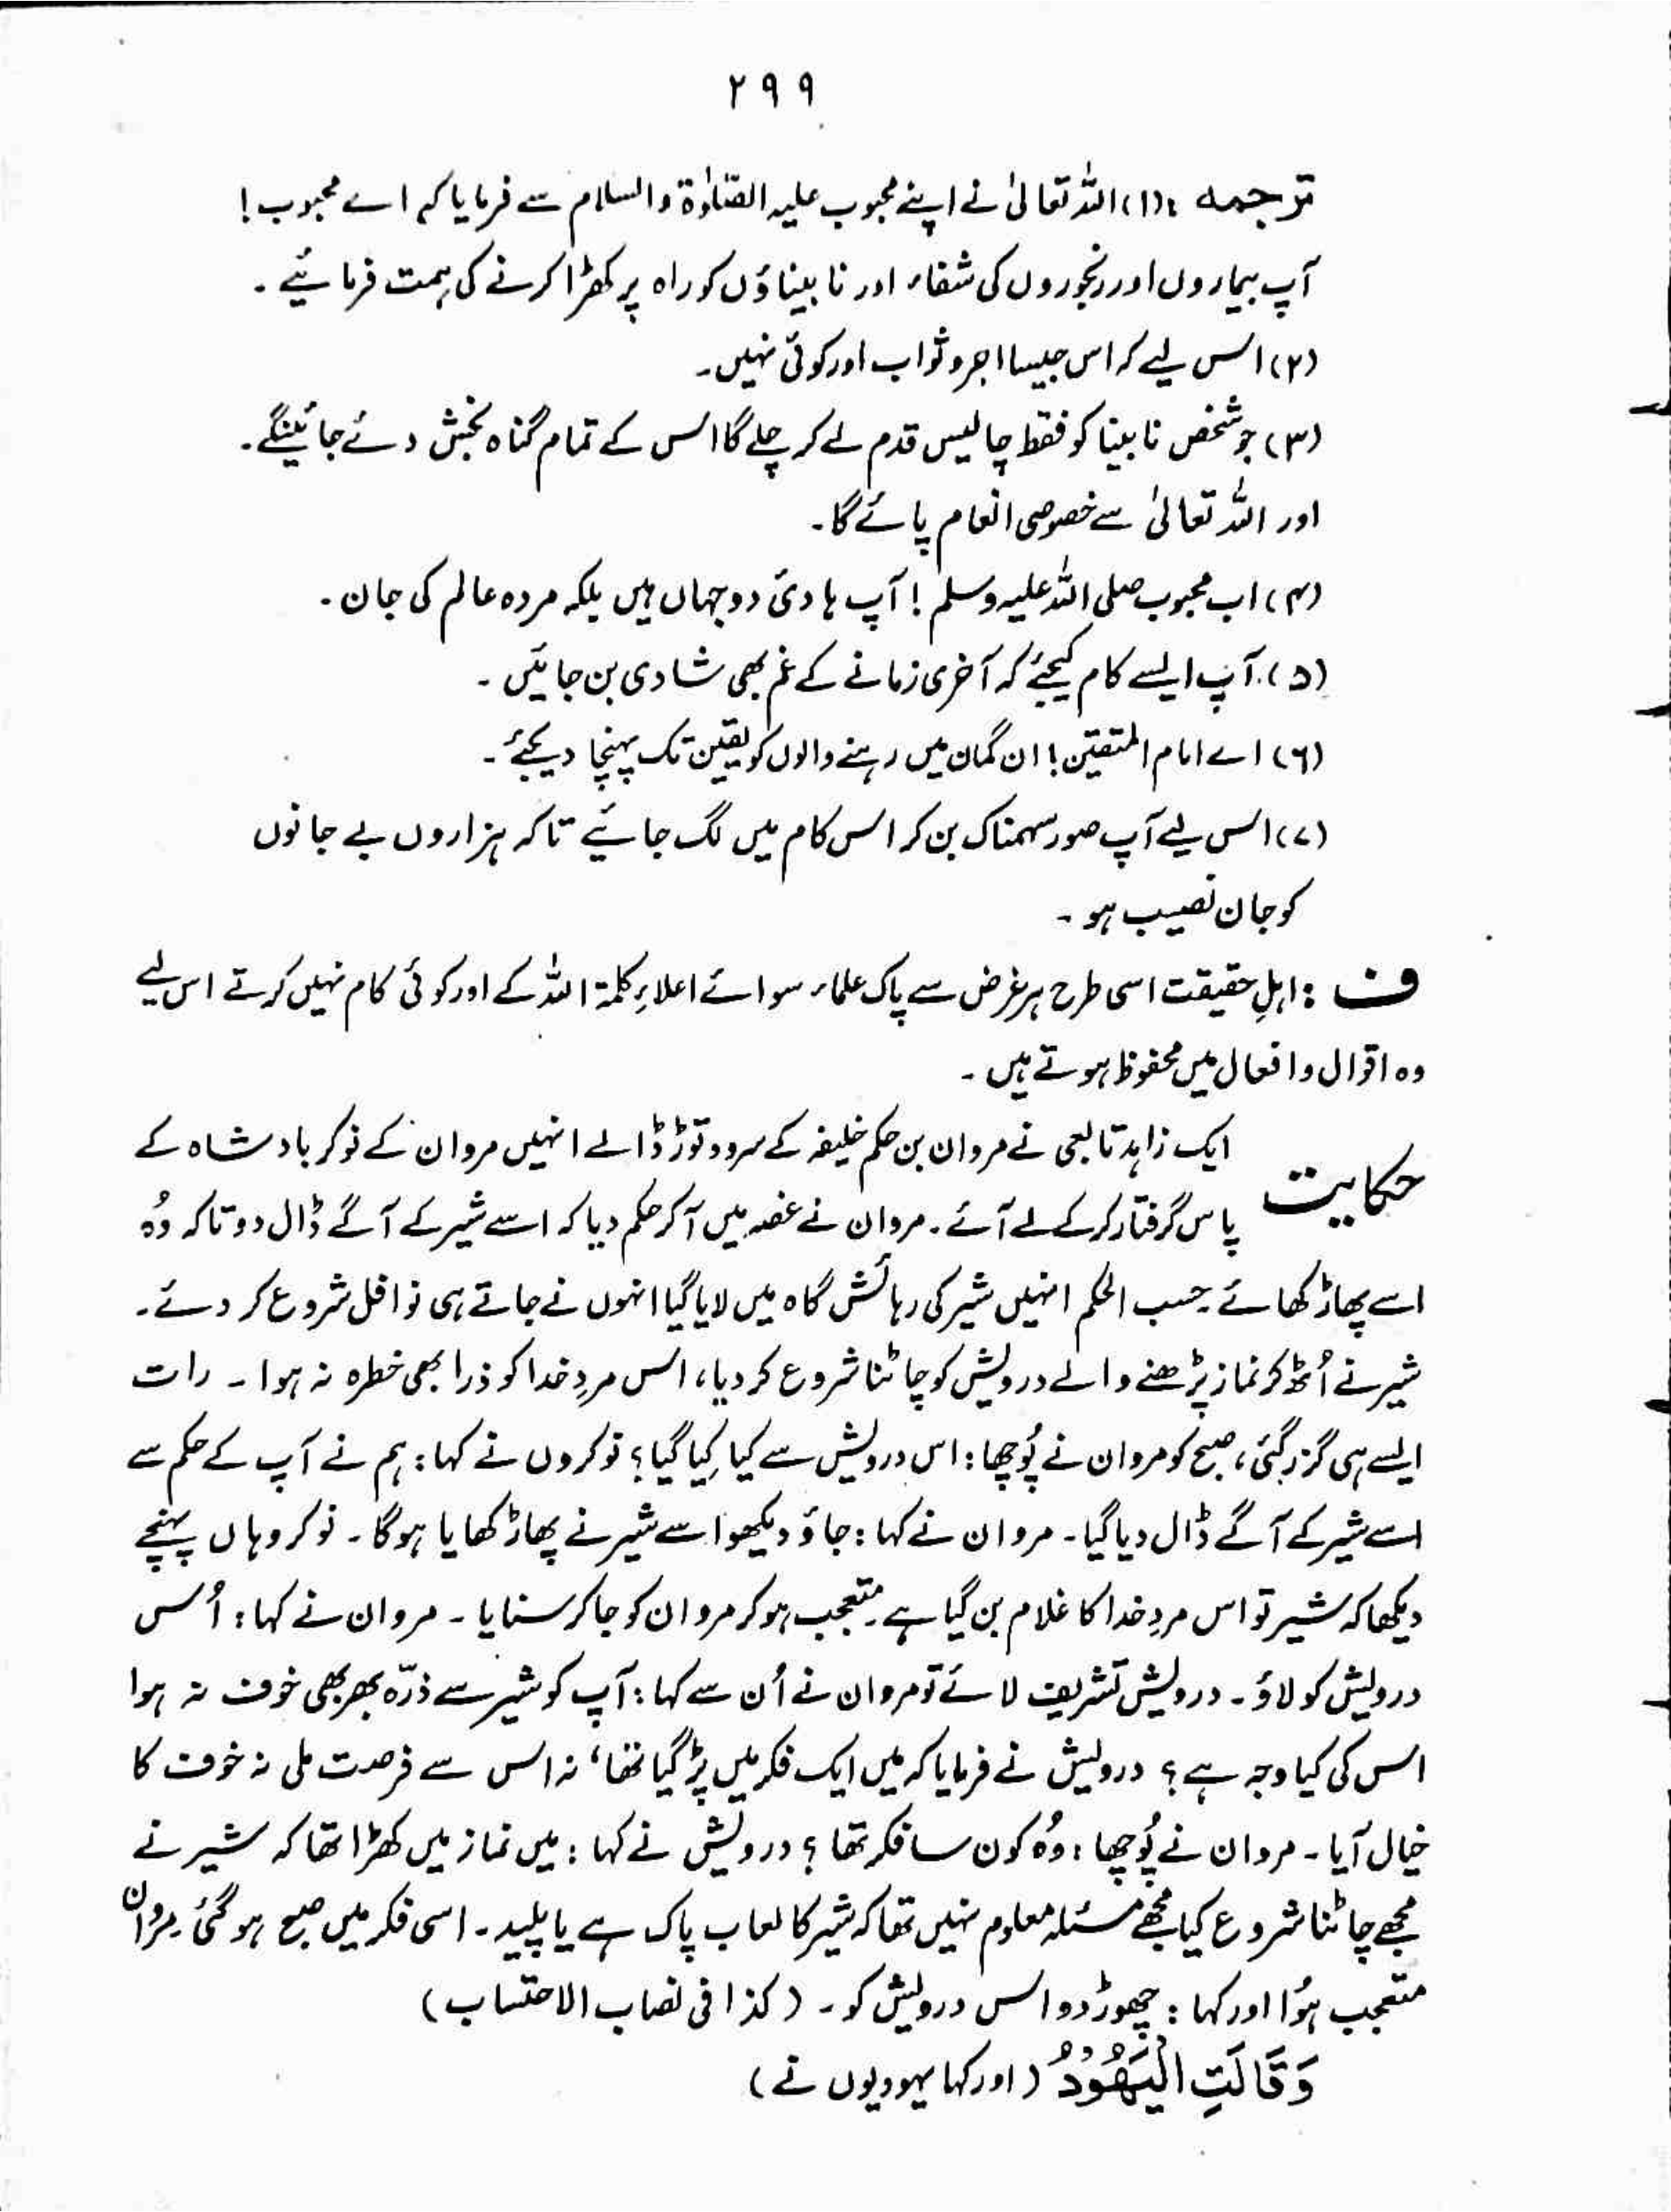 ۲۹۹
ترجمہ : (۱) اللہ تعالیٰ نے اپنے محبوب علیہ الصّلوٰۃ والسلام سے فرمایا کہ اے محبوب !
آپ بیماروں اور رنجوروں کی شفاء اور نابیناؤں کو راہ پر کھڑا کرنے کی ہمت فرمائیے ۔
(۲) اس لیے کہ اس جیسا اجر و ثواب اور کوئی نہیں۔
(۳) جو شخص نابینا کو فقط چالیس قدم لے کر چلے گا اس کے تمام گناہ بخش دئے جائینگے۔
اور اللہ تعالیٰ سے خصوصی انعام پائے گا۔
(۴) اب محبوب صلی اللہ علیہ وسلم ! آپ ہادیٔ دوجہاں ہیں بلکہ مردہ عالم کی جان ۔
(۵) آپ ایسے کام کیجئے کہ آخری زمانے کے غم بھی شادی بن جائیں ۔
(۶) اے امام المتقین ! ان گمان میں رہنے والوں کو یقین تک پہنچا دیجئے ۔
(۷) اس لیے آپ صور سہمناک بن کر اس کام میں لگ جائیے تاکہ ہزاروں بے جانوں
کو جان نصیب ہو ۔
ف : اہلِ حقیقت اسی طرح ہر غرض سے پاک علماء سوائے اعلاءِ کلمۃ اللہ کے اور کوئی کام نہیں کرتے اس لیے
وہ اقوال و افعال میں محفوظ ہوتے ہیں ۔
حکایت ایک زاہد تابعی نے مروان بن حکم خلیفہ کے سرود توڑ ڈالے انہیں مروان کے نوکر بادشاہ کے
پاس گرفتار کرکے لے آئے ۔ مروان نے غصہ میں آکر حکم دیا کہ اسے شیر کے آگے ڈال دو تاکہ وُہ
اسے پھاڑ کھائے ۔ حسب الحکم انہیں شیر کی رہائش گاہ میں لایا گیا انہوں نے جاتے ہی نوافل شروع کر دئے ۔
شیر نے اُٹھ کر نماز پڑھنے والے درویش کو چاٹنا شروع کر دیا، اس مردِ خدا کو ذرا بھی خطرہ نہ ہوا ۔ رات
ایسے ہی گزر گئی، صبح کو مروان نے پُوچھا : اس درویش سے کیا کِیا گیا ؟ نوکروں نے کہا : ہم نے آپ کے حکم سے
اسے شیر کے آگے ڈال دیا گیا ۔ مروان نے کہا : جاؤ دیکھو اسے شیر نے پھاڑ کھایا ہوگا ۔ نوکر وہاں پہنچے
دیکھا کہ شیر تو اس مردِ خدا کا غلام بن گیا ہے ۔ متعجب ہو کر مروان کو جا کر سنایا ۔ مروان نے کہا : اُس
درویش کو لاؤ ۔ درویش تشریف لائے تو مروان نے اُن سے کہا : آپ کو شیر سے ذرّہ بھر بھی خوف نہ ہوا
اس کی کیا وجہ ہے ؟ درویش نے فرمایا کہ میں ایک فکر میں پڑ گیا تھا، نہ اس سے فرصت ملی نہ خوف کا
خیال آیا ۔ مروان نے پُوچھا : وُہ کون سا فکر تھا ؟ درویش نے کہا : میں نماز میں کھڑا تھا کہ شیر نے
مجھے چاٹنا شروع کیا مجھے مسئلہ معلوم نہیں تھا کہ شیر کا لعاب پاک ہے یا پلید ۔ اسی فکر میں صبح ہو گئی ۔ مروان
متعجب ہُوا اور کہا : چھوڑ دو اس درویش کو ۔ ( کذا فی نصاب الاحتساب )
وَقَالَتِ الْیَھُوْدُ ( اور کہا یہودیوں نے )